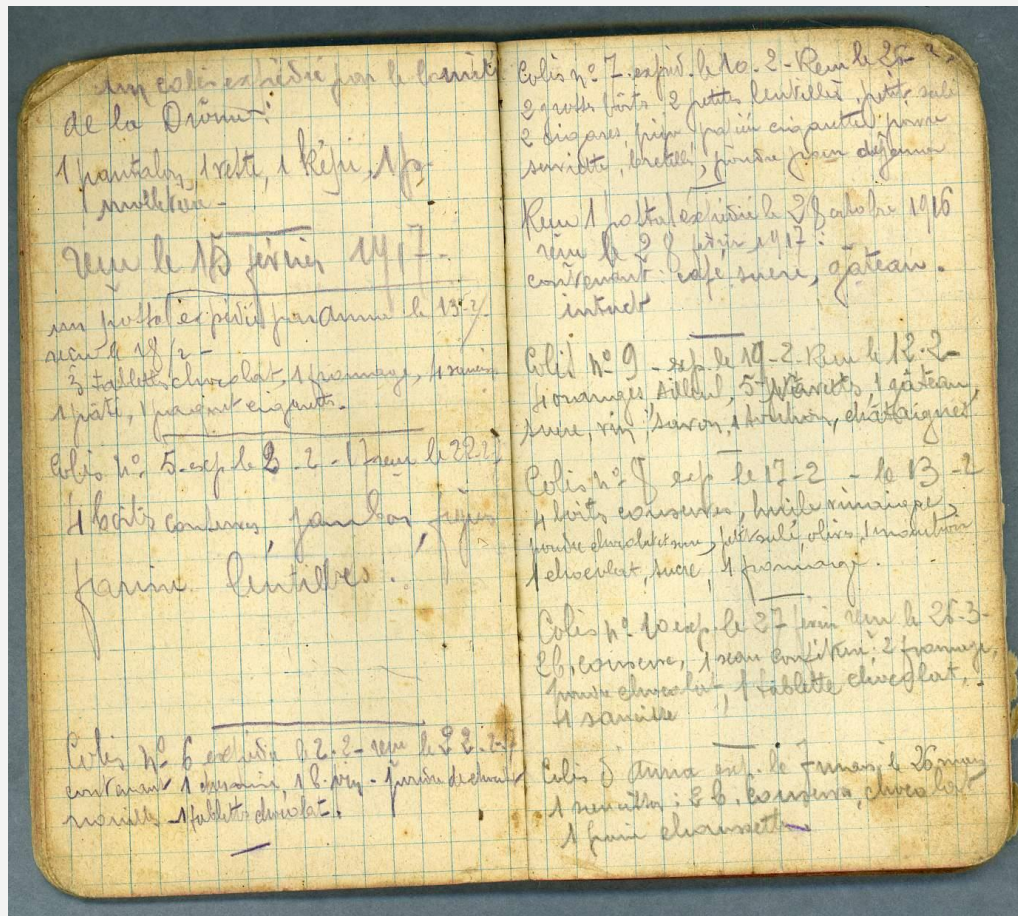 un colis expédié par le Comité
de la Drôme :
1 pantalon, 1 veste, 1 képi, 1 p.
molletière -
reçu le 15 février 1917 -
un postal expédié par Anna le 13-2
reçu le 18/2 -
3 tablettes chocolat, 1 fromage, 4
1 pâté, 1 paquet cigarettes.
Colis nº 5 - exp. le 2 - 2 - 17 reçu le 22-2
4 boîts conserves, jambon, figues
farine lentilles.
Colis nº 6 expédié le 2-2 - reçu le 22-2-
contenant 1 1 b. vin - poudre de chocolat
1 tablette chocolat.
Colis nº 7 - expéd. le 10 - 2 - Reçu le 26
2 grosses boîts 2 petites lentilles petit salé
2 cigares, cigarettes poivre
serviette, bretelles, poudre pour déjeuner
Reçu 1 postal expédié le 28 octobre 1916
reçu le 28 février 1917 :
contenant café sucre, gâteau.
intact
Colis nº 9 - exp. le 19-2 - Reçu le 12.2-
4 oranges tilleul, 5 1 gâteau,
sucre, riz, savon, 1 châtaignes
Colis nº 8 exp le 17-2 - le 13 -2
4 boits conserves, huile vinaigre,
poudre petit salé, olives,
1 chocolat, sucre, 1 fromage.
Colis nº 10 exp. le 27 février reçu le 26-3-
2 b. conserve, 1 seau confiture 2 fromage,
poudre chocolat, 1 tablette chocolat,
4
Colis d'Anna exp. le 7 mars, le 26 mars
1 : 2 b. conserve, chocolat
1 paire chaussettes